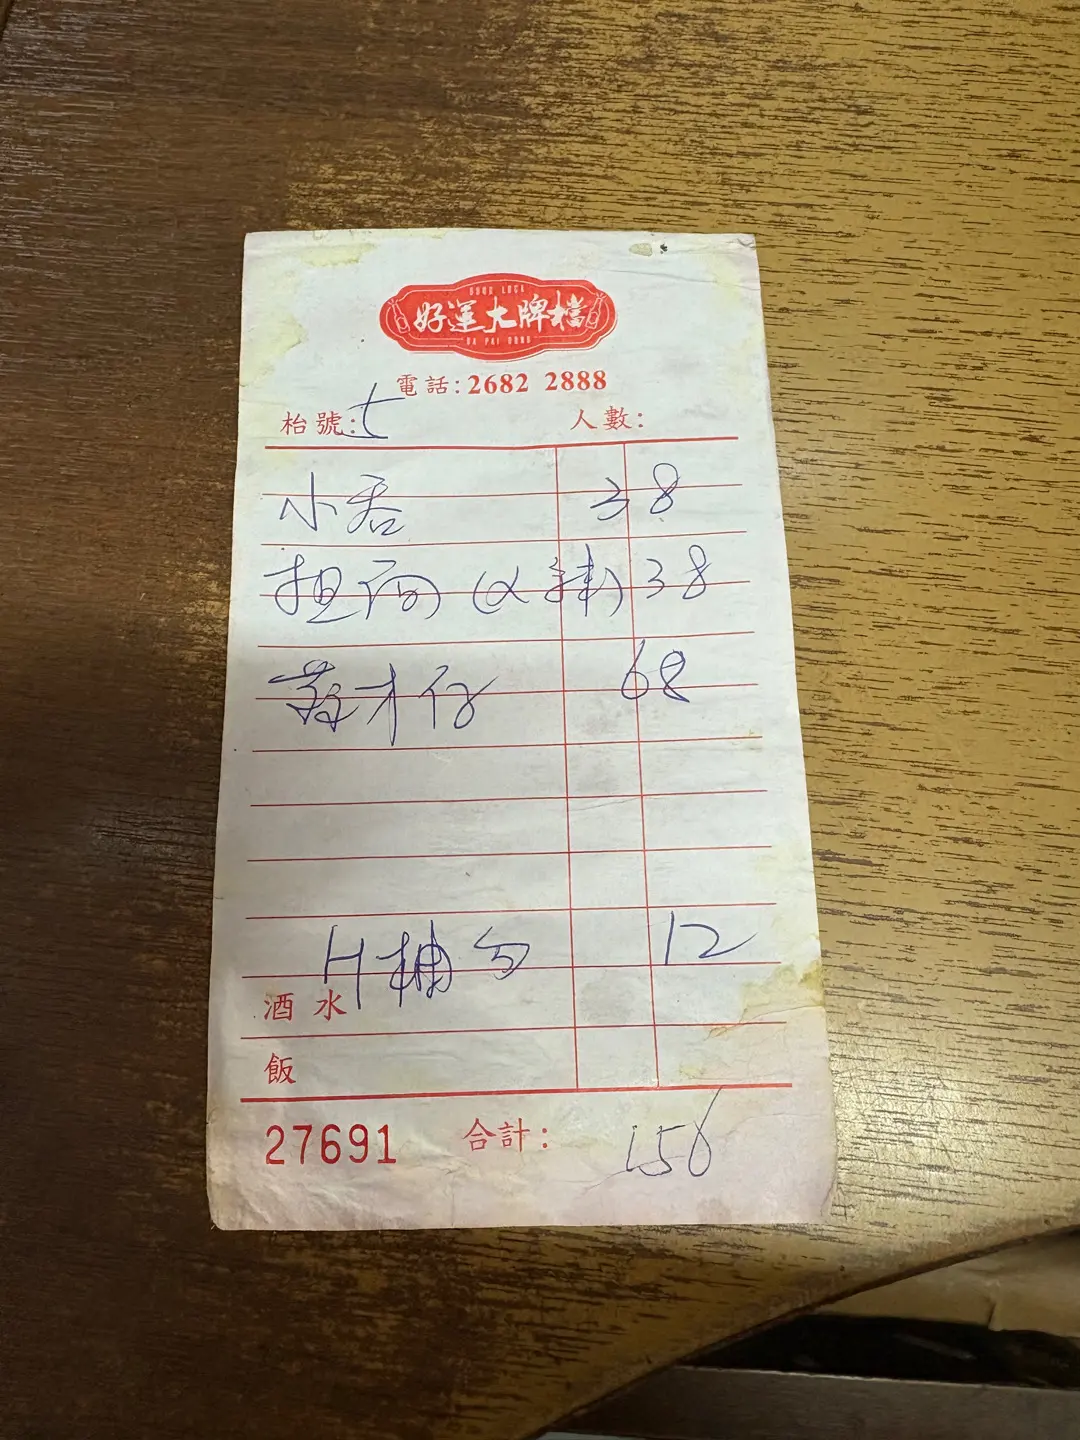 GOOD LUCK
好運大牌檔
DA PAI DONG
電話: 2682 2888
枱號: 七
人數:
小吞 38
担担 (走辣) 38
墨才仔 68
H柚勺 12
酒水
飯
27691 合計: 156